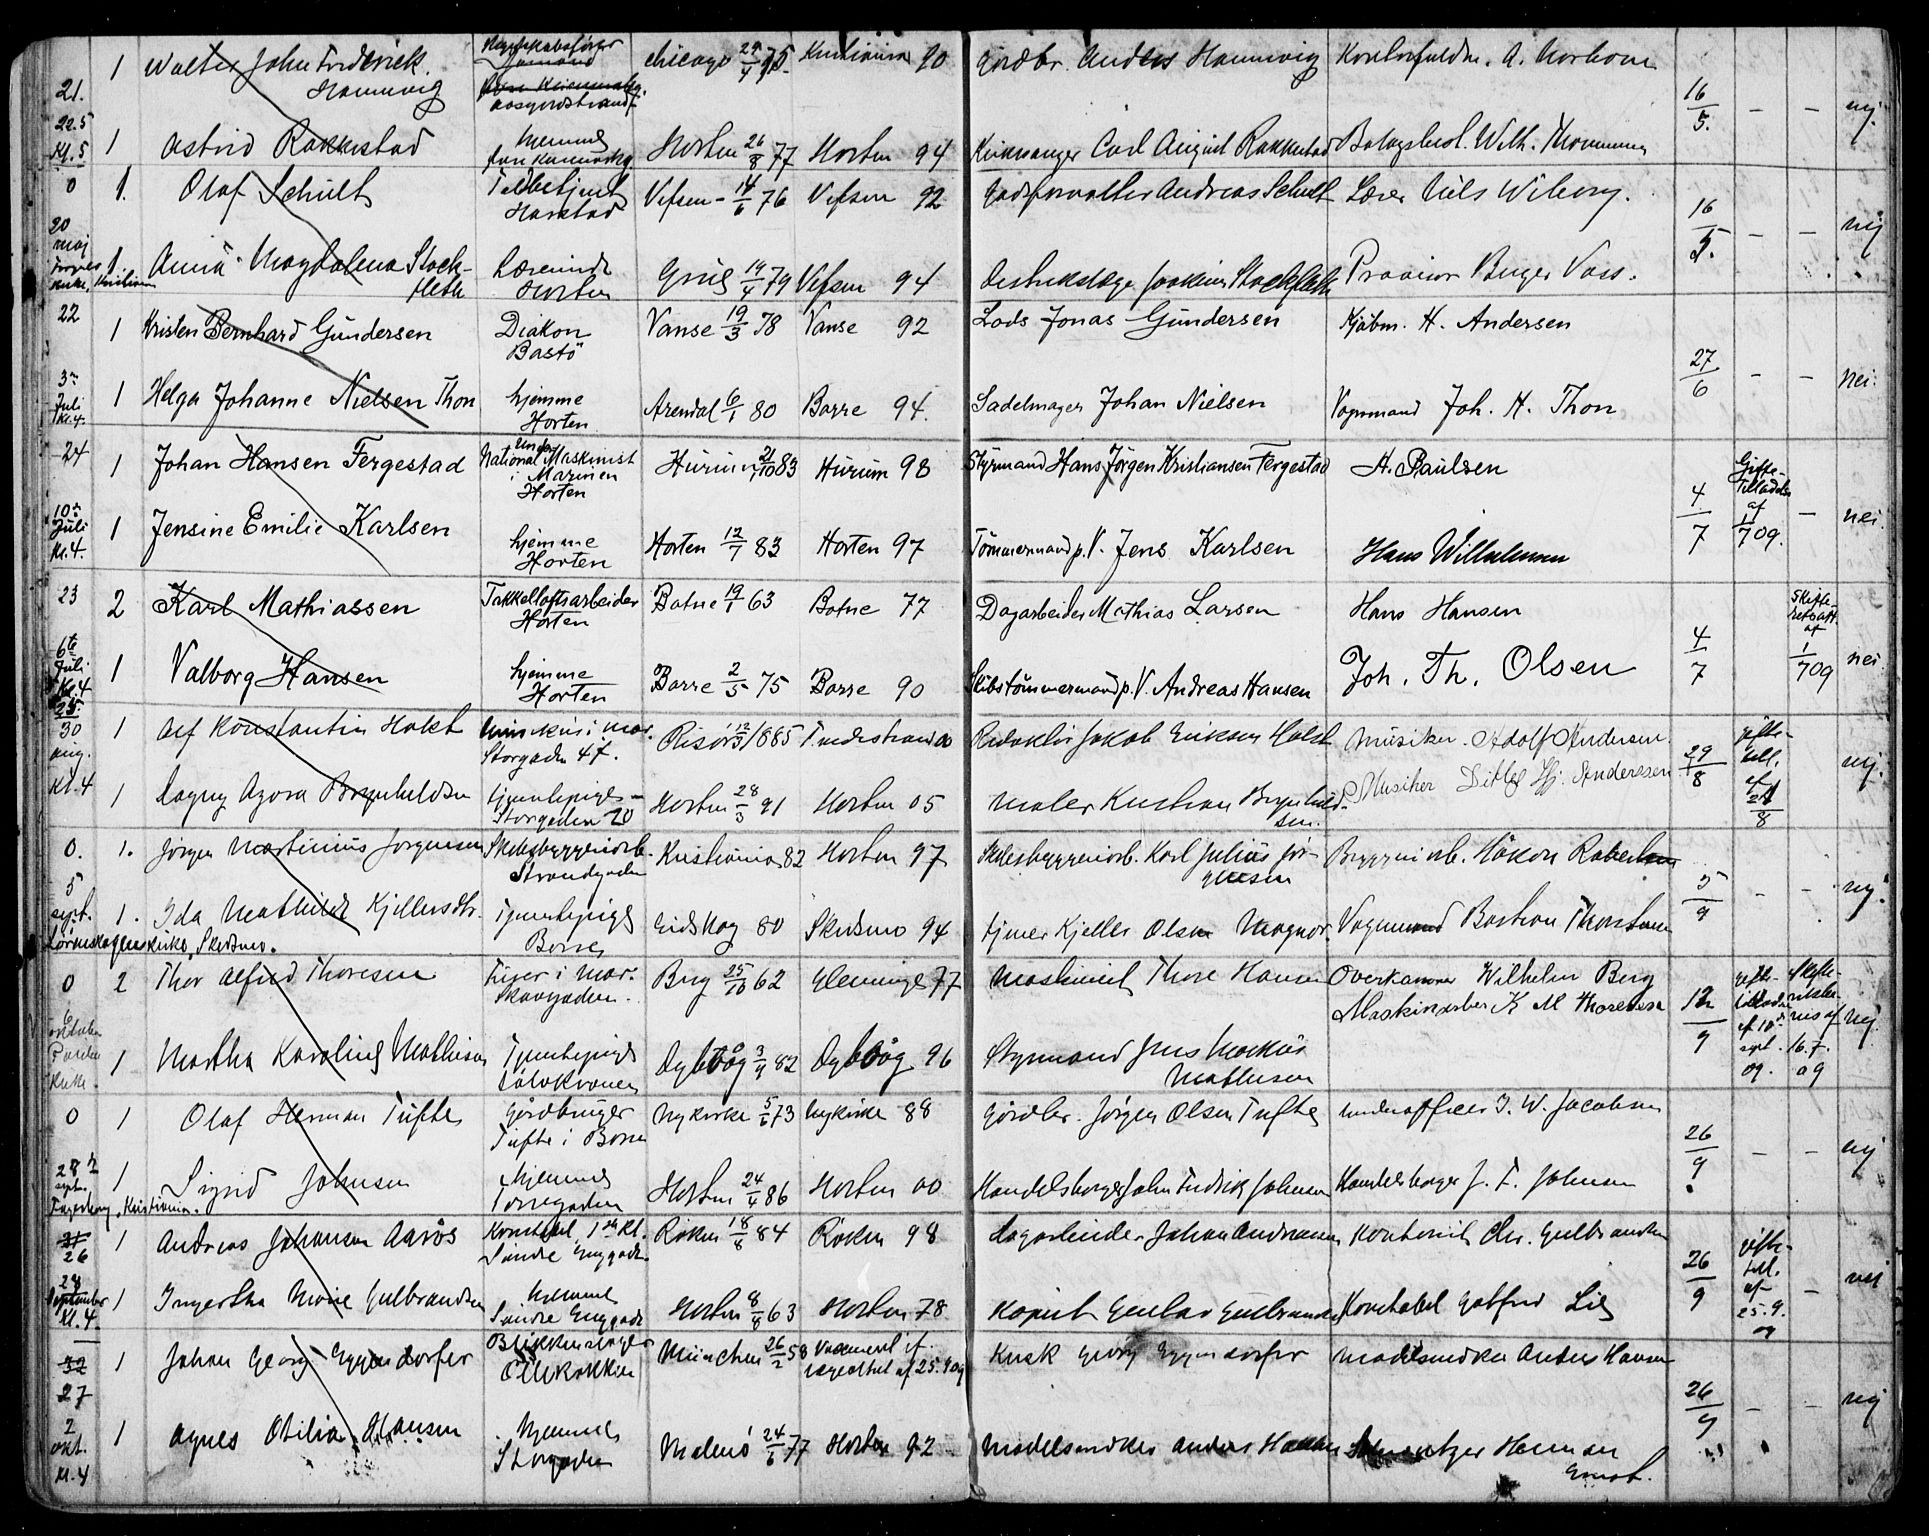 21. 1 Walter John Frederick Hannevig Aasgaardstrand Chicago 24/4 75 Kristiania 90 Gårdbr. Anders Hannevig Kontorfuldm. A. Norbom 16/5. — — nej.
22.5 Kl. 5 1 Astrid Rakkestad hjemme Horten 26/8 77 Horten 94 Kirkesanger Carl August Rakkestad Wilh. Thommesen
0 1. Olaf Schult Harstad Vefsen 14/6 76 Vefsen 92 Andreas Schult Lærer Niels Wiborg. 16/5. — — nej
20 maj 1. Anna Magdalena Stockfleth Lærerinde Horten 19/4 79 Vefsen 94 Distriktslæge Joakim Stockfleth Provisor Birger Voss.
22 1 Kristen Bernhard Gundersen Diakon Bastö Vanse 19/3 78 Vanse 92 Lods Jonas Gundersen Kjøbm. H. Andersen 27/6 — — nei.
3die Juli Kl. 4. 1 Helga Johanne Nielsen Thon hjemme Horten Arendal 6/1 80 Borre 94. Sadelmager Johan Nielsen Vognmand Joh. H. Thon
24 1 Johan Hansen Fergestad Under Maskinist i Marinen Horten Hurum 2/10 83 Hurum 98 Styrmand Hans Jörgen Kristiansen Fergestad H. Paulsen 4/7 Gifte-Tilladelse af 1/7 09. — nei.
10de Juli Kl. 4. 1 Jensine Emilie Karlsen hjemme Horten Horten 12/7 83 Horten 97 Tömmermand p. V. Jens Karlsen Hans Wilhelmsen
23 2 Karl Mathiassen Takkelloftsarbeider Horten Botne 19/1 63 Botne 77 Dagarbeider Mathias Larsen Hans Hansen 4/7 Skifteretsatt. af 1/7 09 nei
6te Juli Kl. 4 1 Valborg Hansen hjemme Horten Borre 2/5 75 Borre 90 Skibstömmermand p. V. Andreas Hansen Joh. Th. Olsen
25 30 aug. Kl. 4 1 Alf Konstantin Holst Storgaden 47. Risør 12/3 1885 Tvedestrand 00 Redaktør Jakob Eriksen Holst Musiker. Adolf Andersen. 29/8 gifte-till. af 21/8 nej.
1 Dagny Agora Brynhildsen tjenestepige Storgaden 20 Horten 28/3 91 Horten 05 Maler Kristian Brynhildsen. Musiker Ditlef Hj. Anderssen
0. 1. Jørgen Martinius Jørgensen Skibsbyggeriarb. Strandgaden Kristiania 82 Horten 97 Skibsbyggeriarb. Karl Julius Jørgensen Byggeriarb. Håkon Robertsen 5/9 — — nej.
5 sept. 1. Ida Mathilde Kjellersdtr. Tjenestepige Borre Eidskog 80 Skedsmo 94 Kjeller Olsen Magnor. Vognmand Bastian Thorstensen
Lørenskogens kirke, Skedsmo.
0 2 Thor Alfred Thoresen Skovgaden. Berg 25/10 62 Glemminge 77 Maskinist Thore Hansen Wilhelm Berg 12/9 gifte-tilladelse af 10de sept. 09. af 16.7. 09 nej.
1 Martha Karoline Mathisen Tjenestepige Dybvåg 3/9 82 Dybvåg 96 Styrmand Jens Markus Mathisen Maskinarbei K M Thoresen
0 1 Olaf Herman Tufte Gårdbruger Tufte i Borre Nykirke 5/6 73 Nykirke 88 Gårdbr. Jørgen Olsen Tufte Underofficer I. W. Jacobsen 26/9 — — nej
28de sept. 1 Sigrid Johnsen hjemme Torvegaden Horten 24/4 86 Horten 00 Handelsborger John Fredrik Johnsen Handelsborger J. F. Johnsen
Fagerborg, Kristiania.
31 26 1 Andreas Johansen Aarøs Konstabel 1ste Kl. Søndre Enggade Røken 18/8 84 Røken 98 Dagarbeider Johan Andreassen Kontorist Chr. Gulbrandsen 26/9 gifte-till. af 25.9. 09 — nei
28 September Kl. 4. 1 Ingertha Marie Gulbrandsen hjemme Søndre Enggade Horten 8/8 63 Horten 78 Gustav Gulbrandsen Konstabel Gotfred Lie
32 27 1 Johan Georg Eggendorfer Blikkenslager München 26/2 58 af 25. 9 09 Kusk Georg Eggendorfer Modelsnedker Anders Hansen 26/9 — — nej
2 okt. Kl. 4 1 Agnes Otilia Hansen hjemme Storgaden Malmö 24/6 77 Horten 92 Modelsnedker Anders Hansen Herman Ernst.